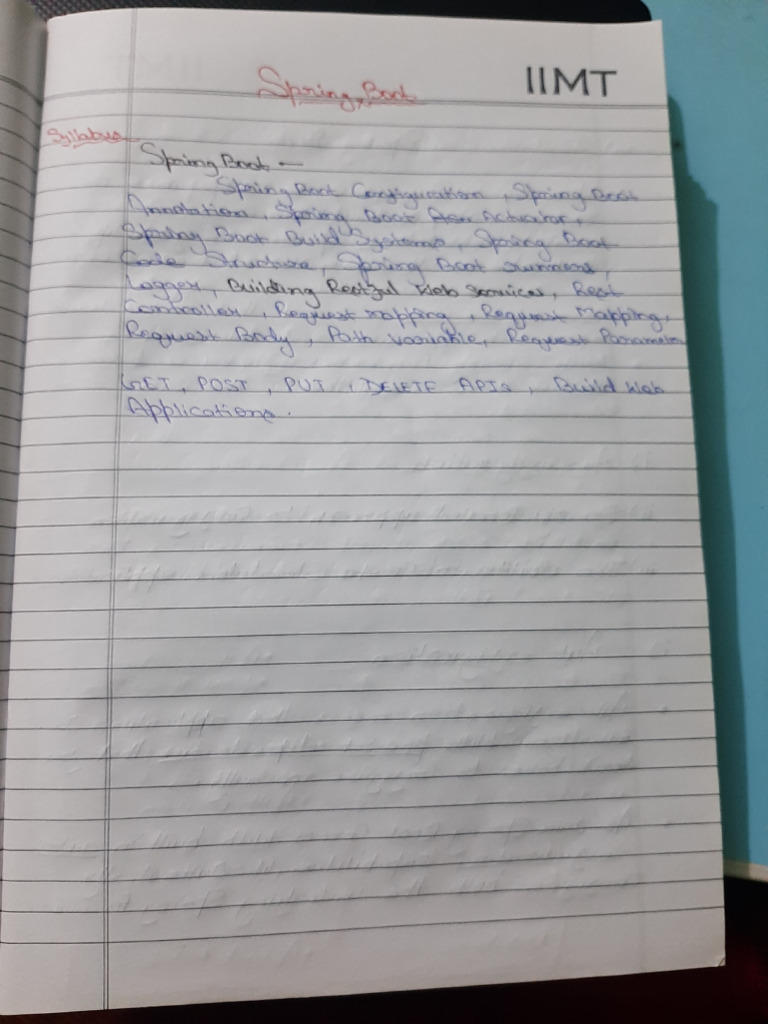 IIMT
Spring Boot
Syllabus
Spring Boot -
Spring Boot Configuration, Spring Boot
Annotation, Spring Boot Actuator,
Spring Boot Build Systems, Spring Boot
Code Structure, Spring Boot runners,
Logger, Building Restful Web services, Rest
Controller, Request mapping, Request Mapping,
Request Body, Path variable, Request Parameter
GET, POST, PUT, DELETE APIs, Build Web
Applications.